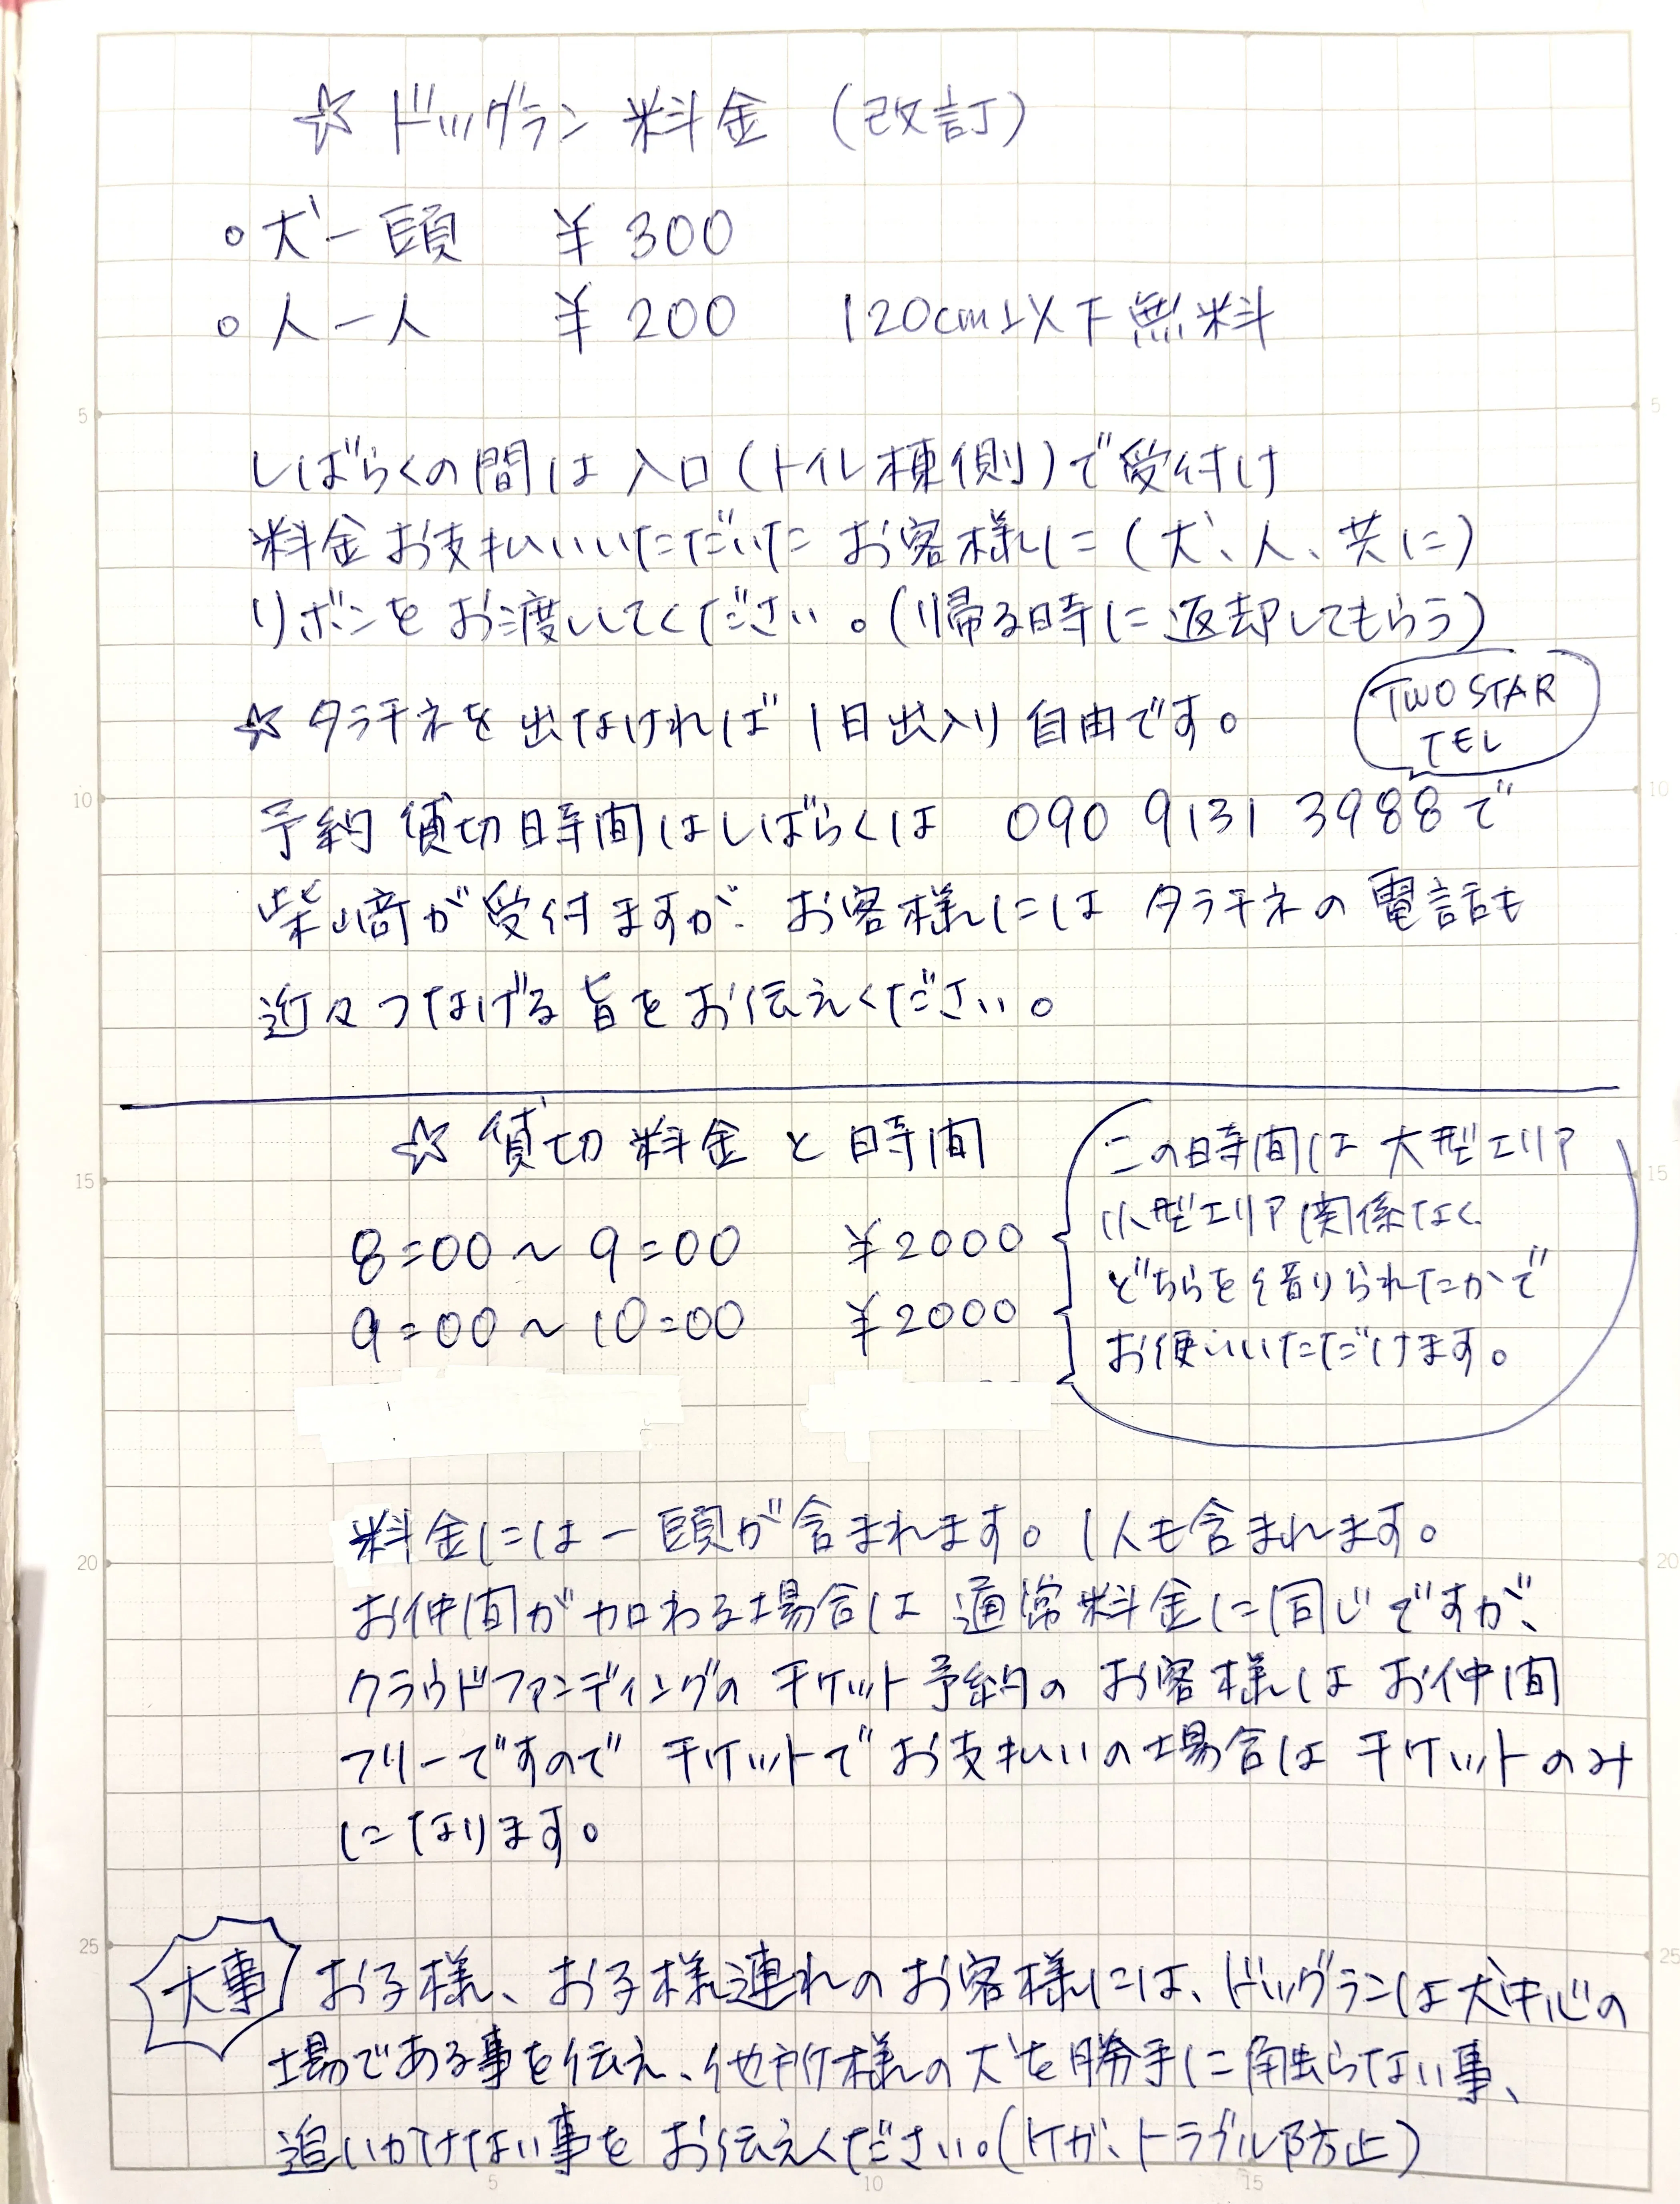 ☆ ドッグラン 料金 (改訂)
○ 犬一頭 ¥ 300
○ 人一人 ¥ 200 120cm以下無料
しばらくの間は入口(トイレ棟側)で受付け
料金お支払いいただいた お客様に(犬、人、共に)
リボンを お渡してください。(帰る時に返却してもらう)
☆ タラチネを出なければ 1日出入り自由です。
TWO STAR
TEL
予約 貸切時間はしばらくは 090 9131 3988で
柴﨑が受付ますが、お客様には タラチネの電話も
近々つなげる旨をお伝えください。
☆ 貸切料金と時間
8:00〜9:00 ¥2000
9:00〜10:00 ¥2000
この時間は大型エリア
小型エリア関係なく、
どちらを借りられたかで
お使いいただけます。
料金には一頭が含まれます。1人も含まれます。
お仲間が加わる場合は 通常料金に同じですが、
クラウドファンディングの チケット予約の お客様は お仲間
フリーですので チケットで お支払いの場合は チケットのみ
になります。
大事
お子様、お子様連れのお客様には、ドッグランは犬中心の
場である事を伝え、他所様の犬を勝手に触らない事、
追いかけない事を お伝えください。(ケガ、トラブル防止)
5
10
15
20
25
5
10
15
20
25
5
10
15